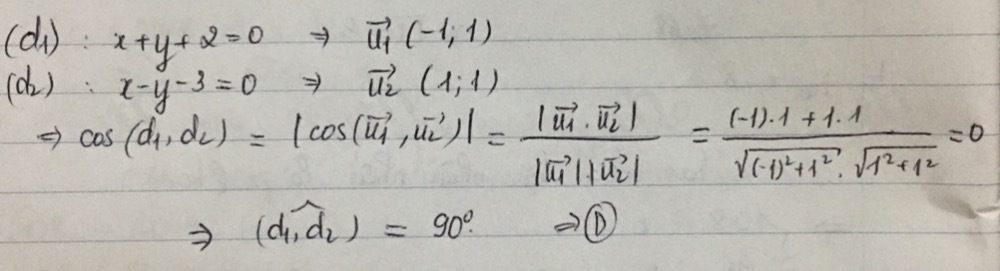 (d₁) : x+y+2=0 ⇒ u₁⃗ (-1; 1)
(d₂) : x-y-3=0 ⇒ u₂⃗ (1; 1)
⇒ cos(d₁,d₂) = |cos(u₁⃗, u₂⃗)| = |u₁⃗ . u₂⃗| / |u₁⃗||u₂⃗| = (-1).1 + 1.1 / √((-1)²+1²) . √(1²+1²) = 0
⇒ (d₁,d₂)^ = 90⁰. ⇒ Ⓓ